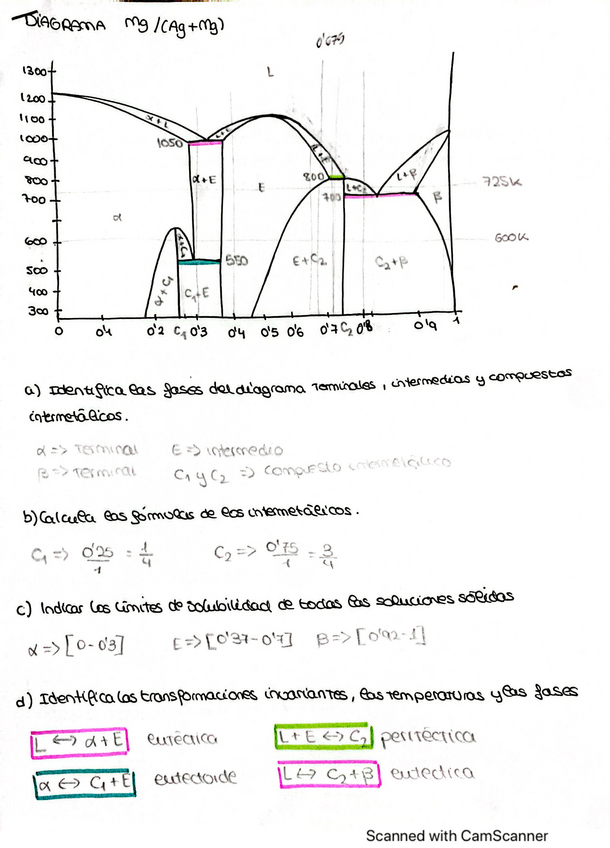 DIAGRAMA Mg/(Ag+Mg)
0'679
1300
L
1200
1100
α+L
L+E
1000
1050
α+E
900
800
800
L+β
725K
E
L+C2
700
700
β
α
600
600K
α+C1
550
E+C2
C2+β
500
α+C1
C1+E
400
300
0 0'1 0'2 C1 0'3 0'4 0'5 0'6 0'7 C2 0'8 0'9 1
a) Identifica las fases del diagrama Terminales, intermedias y compuestos
intermetálicos.
α => Terminal E => intermedio
β => Terminal C1 y C2 => Compuesto intermetálico
b) Calcula las fórmulas de los intermetálicos.
C1 => 0'25/1 = 1/4 C2 => 0'75/1 = 3/4
c) Indicar los límites de solubilidad de todas las soluciones sólidas
α => [0-0'3] E => [0'37-0'7] β => [0'92-1]
d) Identifica las transformaciones invariantes, las temperaturas y las fases
L <-> α+E eutéctica L+E <-> C2 peritéctica
α <-> C1+E eutectoide L <-> C2+β eutéctica
Scanned with CamScanner